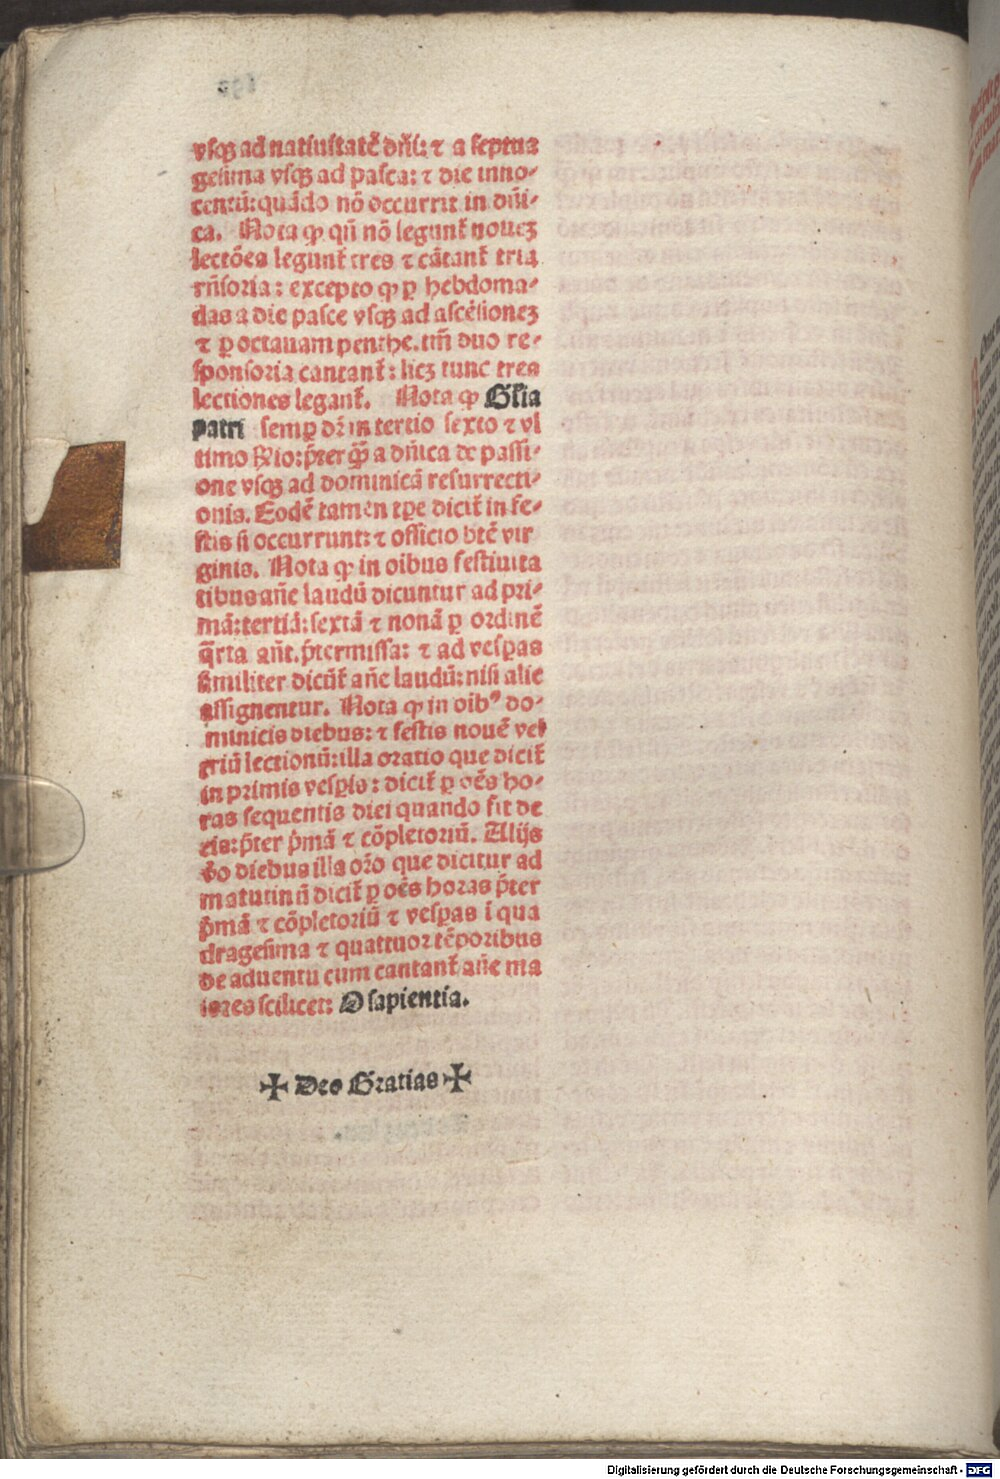 vsqꝫ ad natiuitatē dn̄i: ⁊ a septua
gesima vsqꝫ ad pasca: ⁊ die inno-
centū: quādo nō occurrit in dn̄i-
ca. Nota ꝙ qn̄ nō legunt᷑ nouez
lectōes legunt᷑ tres ⁊ cātant᷑ tria
rn̄soria: excepto ꝙ ꝑ hebdoma-
das a die pasce vsqꝫ ad ascēsionez
⁊ ꝑ octauam penthe. tm̄ duo re-
sponsoria cantant᷑: licꝫ tunc tres
lectiones legant᷑. Nota ꝙ Gl'ia
patri semꝑ dr̄ in tertio sexto ⁊ vl
timo ℞io: p̄ter qꝫ a dn̄ica de passi-
one vsqꝫ ad dominicā resurrecti-
onis. Eodē tamen tꝑe dicit᷑ in fe-
stis si occurrunt: ⁊ officio btē vir
ginis. Nota ꝙ in oibus festiuita
tibus an̄e laudū dicuntur ad pri-
mā: tertiā: sextā ⁊ nonā ꝑ ordinē
q̄rta an̄t. p̄termissa: ⁊ ad vesꝑas
similiter dicūt᷑ an̄e laudū: nisi alie
assignentur. Nota ꝙ in oibꝰ do-
minicis diebus: ⁊ festis nouē vel
triū lectionū: illa oratio que dicit᷑
in primis vesꝑis: dicit᷑ ꝑ oēs ho-
ras sequentis diei quando fit de
eis: p̄ter p̄mā ⁊ cōpletoriū. Alijs
v̄o diebus illa or̄o que dicitur ad
matutinū dicit᷑ ꝑ oēs horas p̄ter
p̄mā ⁊ cōpletoriū ⁊ vesꝑas ī qua
dragesima ⁊ quattuor tēporibus
de aduentu cum cantant᷑ an̄e ma
iores scilicet: O sapientia.
✠ Deo Gratias ✠
Digitalisierung gefördert durch die Deutsche Forschungsgemeinschaft - DFG